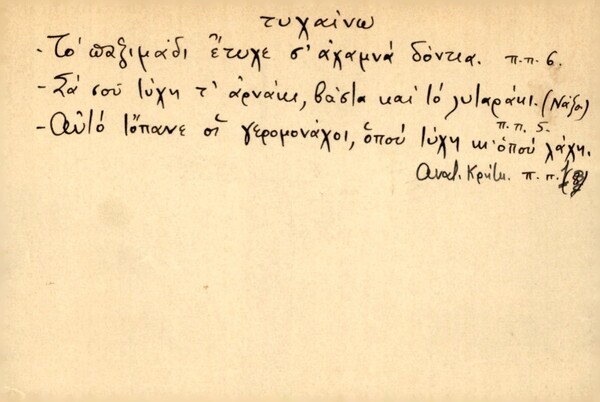 τυχαίνω
- Τό παξιμάδι ἔτυχε σ' ἀχαμνά δόντια. π.π. 6.
- Σά σοῦ τύχη τ' ἀρνάκι, βάστα καί τό λυταράκι. (Νάξο)
π.π. 5.
- Αὐτό τὄπανε οἱ γερομονάχοι, ὅπου τύχη κι ὅπου λάχη.
Ανατ. Κρήτη. π.π.